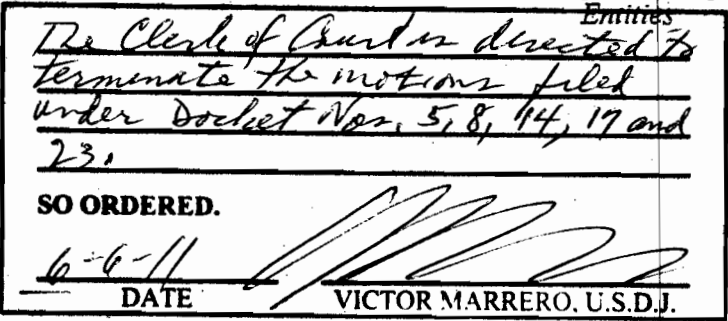 Entities
The Clerk of Court is directed to
terminate the motions filed
under Docket Nos. 5, 8, 14, 17 and
23.
SO ORDERED.
6-6-11
DATE
VICTOR MARRERO, U.S.D.J.